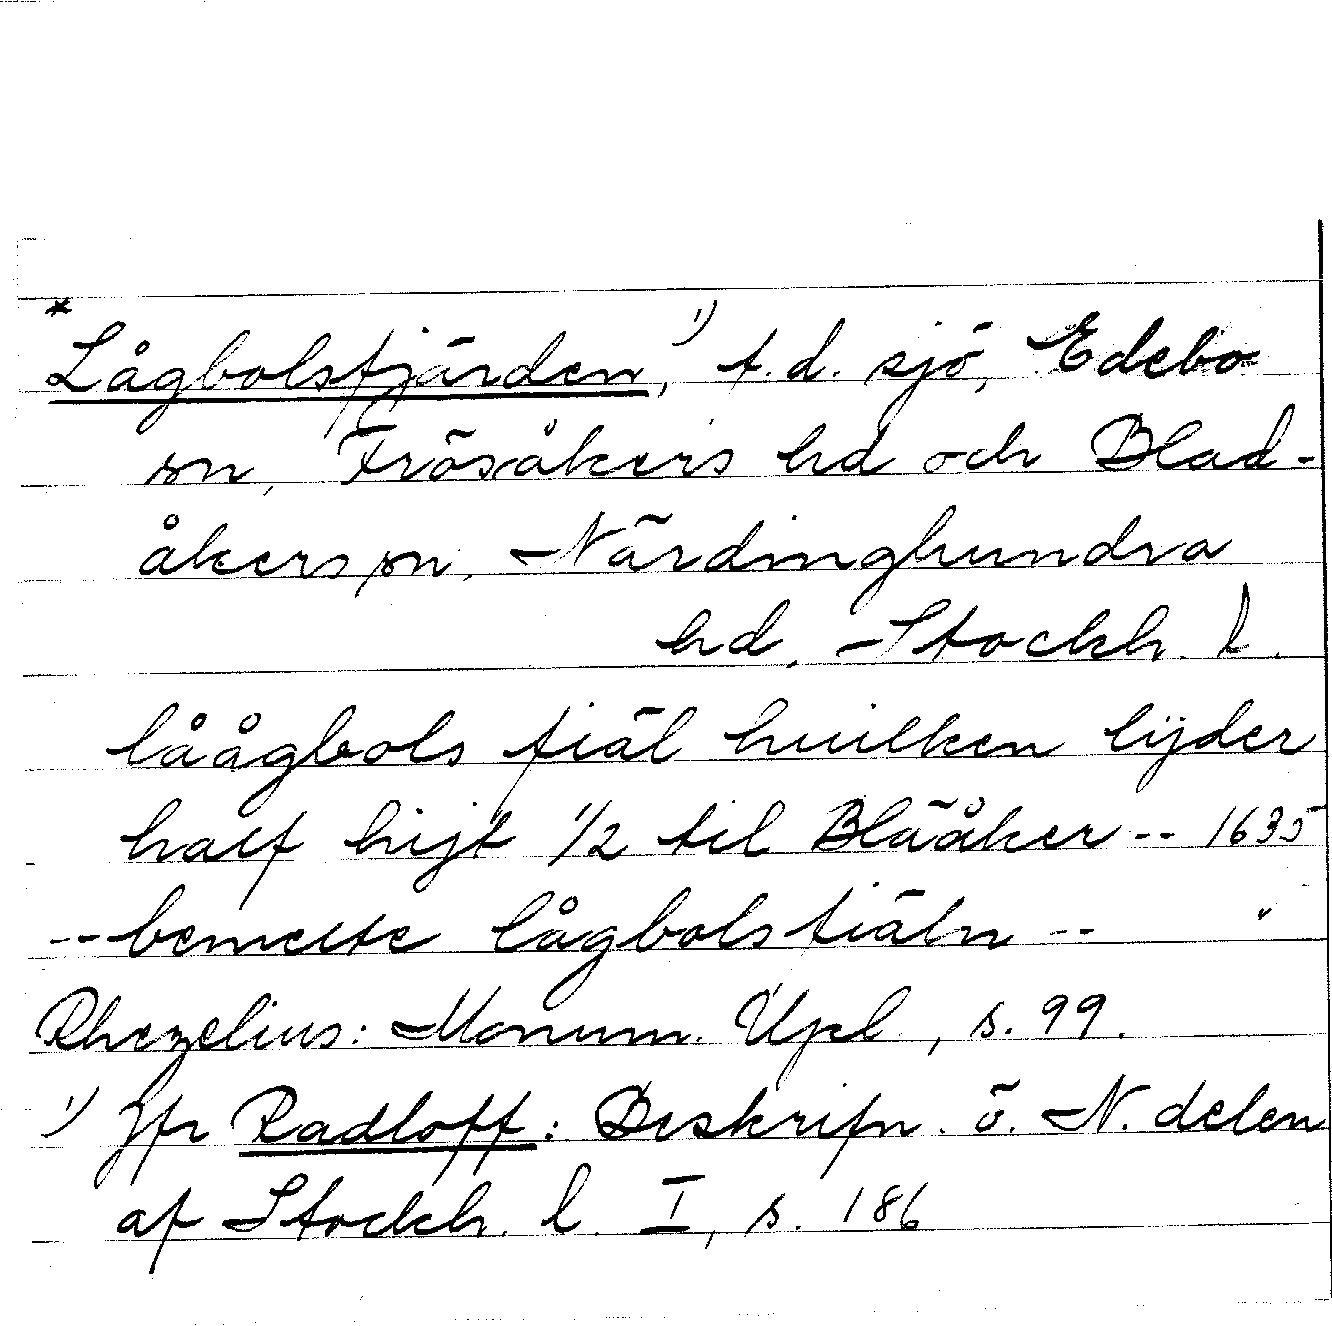 *Lågbolsfjärden,¹⁾ f.d. sjö, Edebo
sn, Frösåkers hd och Blad-
åkers sn, Närdinghundra
hd, Stockh. l.
låågbols fiäl huilken lijder
half hijt 1/2 til Blååker -- 1635
-- bemelte lågbolsfiäln -- "
Rhezelius: Monum. Upl., s. 99.
¹⁾ Jfr Radloff: Deskrifn. ö. N. delen
af Stockh. l. I, s. 186